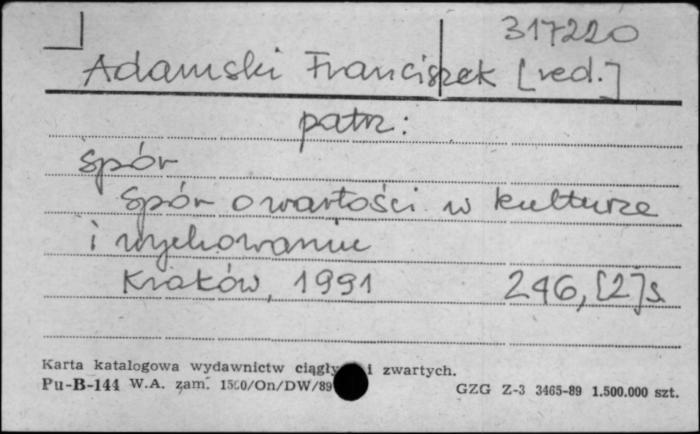 317220
Adamski Franciszek [red.]
patrz:
Spór
Spór o wartości w kulturze
i wychowaniu
Kraków, 1991 246, [2] s
Karta katalogowa wydawnictw ciągły i zwartych.
Pu-B-144 W.A. zam. 1500/On/DW/89 GZG Z-3 3465-89 1.500.000 szt.